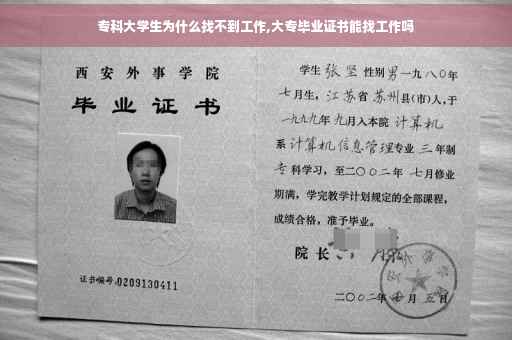 专科大学生为什么找不到工作,大专毕业证书能找工作吗
西安外事学院
毕业证书
证书编号:0209130411
学生 张坚 性别 男 一九八〇年
七月生, 江苏省 苏州县(市)人, 于
一九九九年 九月入本院 计算机
系 计算机信息管理专业 三 年制
专 科学习, 至二〇〇二年 七月修业
期满, 学完教学计划规定的全部课程,
成绩合格, 准予毕业。
院长
二〇〇二年 七月 五日